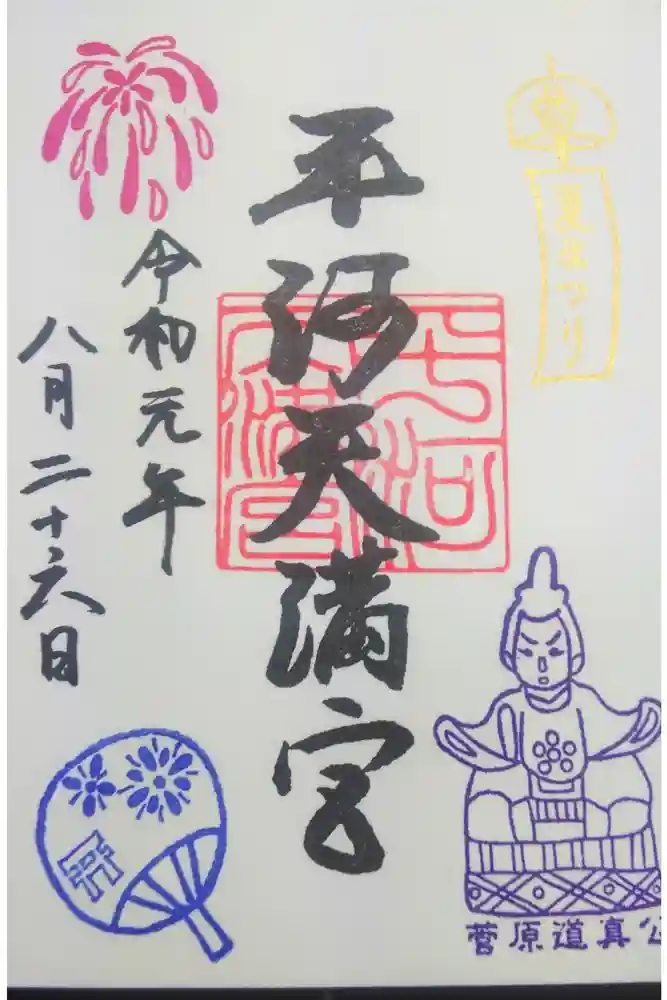 夏まつり
平河天満宮
平河天満宮
令和元年
八月二十六日
菅原道真公